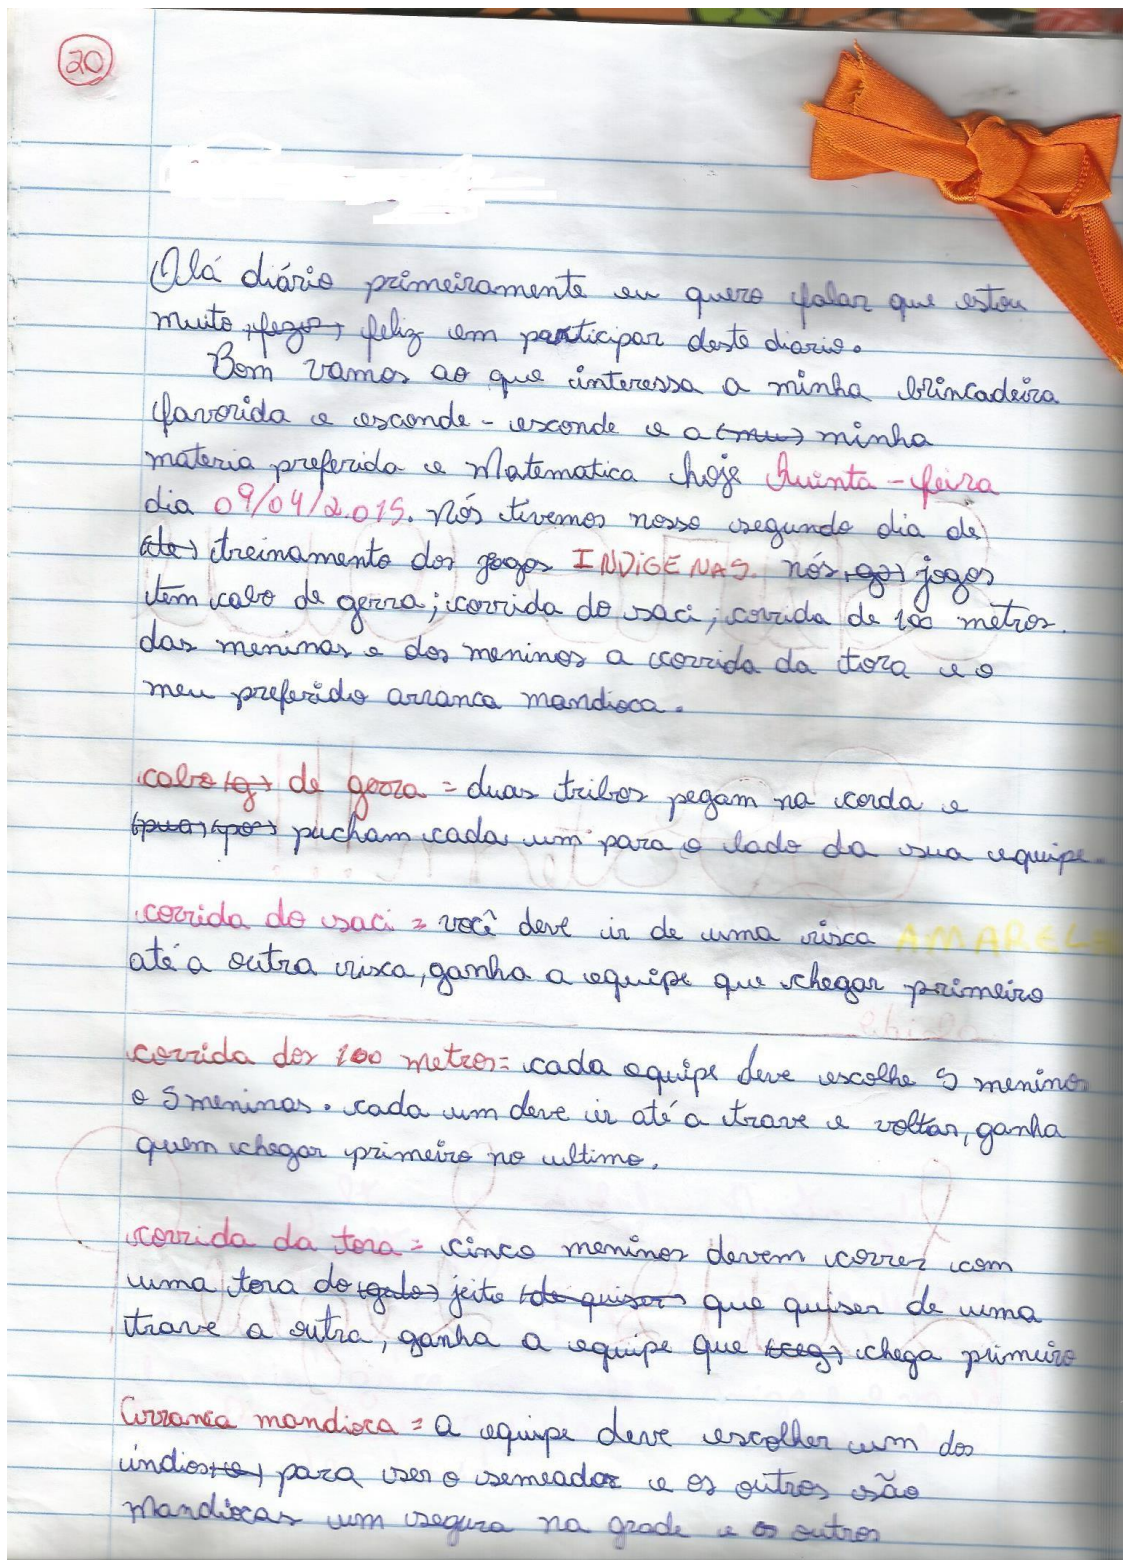 20
Olá diário primeiramente eu quero falar que estou
muito feliz em participar deste diario.
Bom vamos ao que interessa a minha brincadeira
favorida e esconde-esconde e a (mu) minha
materia preferida e Matematica hoje Quinta-feira
dia 09/04/2.015. Nós tivemos nosso segundo dia de
(te) treinamento dos jogos INDIGENAS. nós (go) jogos
tem cabo de gerra; corrida do saci; corrida de 100 metros.
das meninas e dos meninos a corrida da tora e o
meu preferido arranca mandioca.
cabo (g) de gerra = duas tribos pegam na corda e
(pua) (po) pucham cada um para o lado da sua equipe.
corrida do saci = você deve ir de uma risca AMARELA
até a outra risca, ganha a equipe que chegar primeiro
corrida dos 100 metros = cada equipe deve escolhe 5 meninos
e 5 meninas. cada um deve ir até a trave e voltar, ganha
quem chegar primeiro no ultimo.
corrida da tora = cinco meninos devem correr com
uma tora do jeito (de quiser) que quiser de uma
trave a outra, ganha a equipe que chega primeiro
Arranca mandioca = a equipe deve escolher um dos
índios para ser o semeador e os outros são
mandiocas um segura na grade e os outros